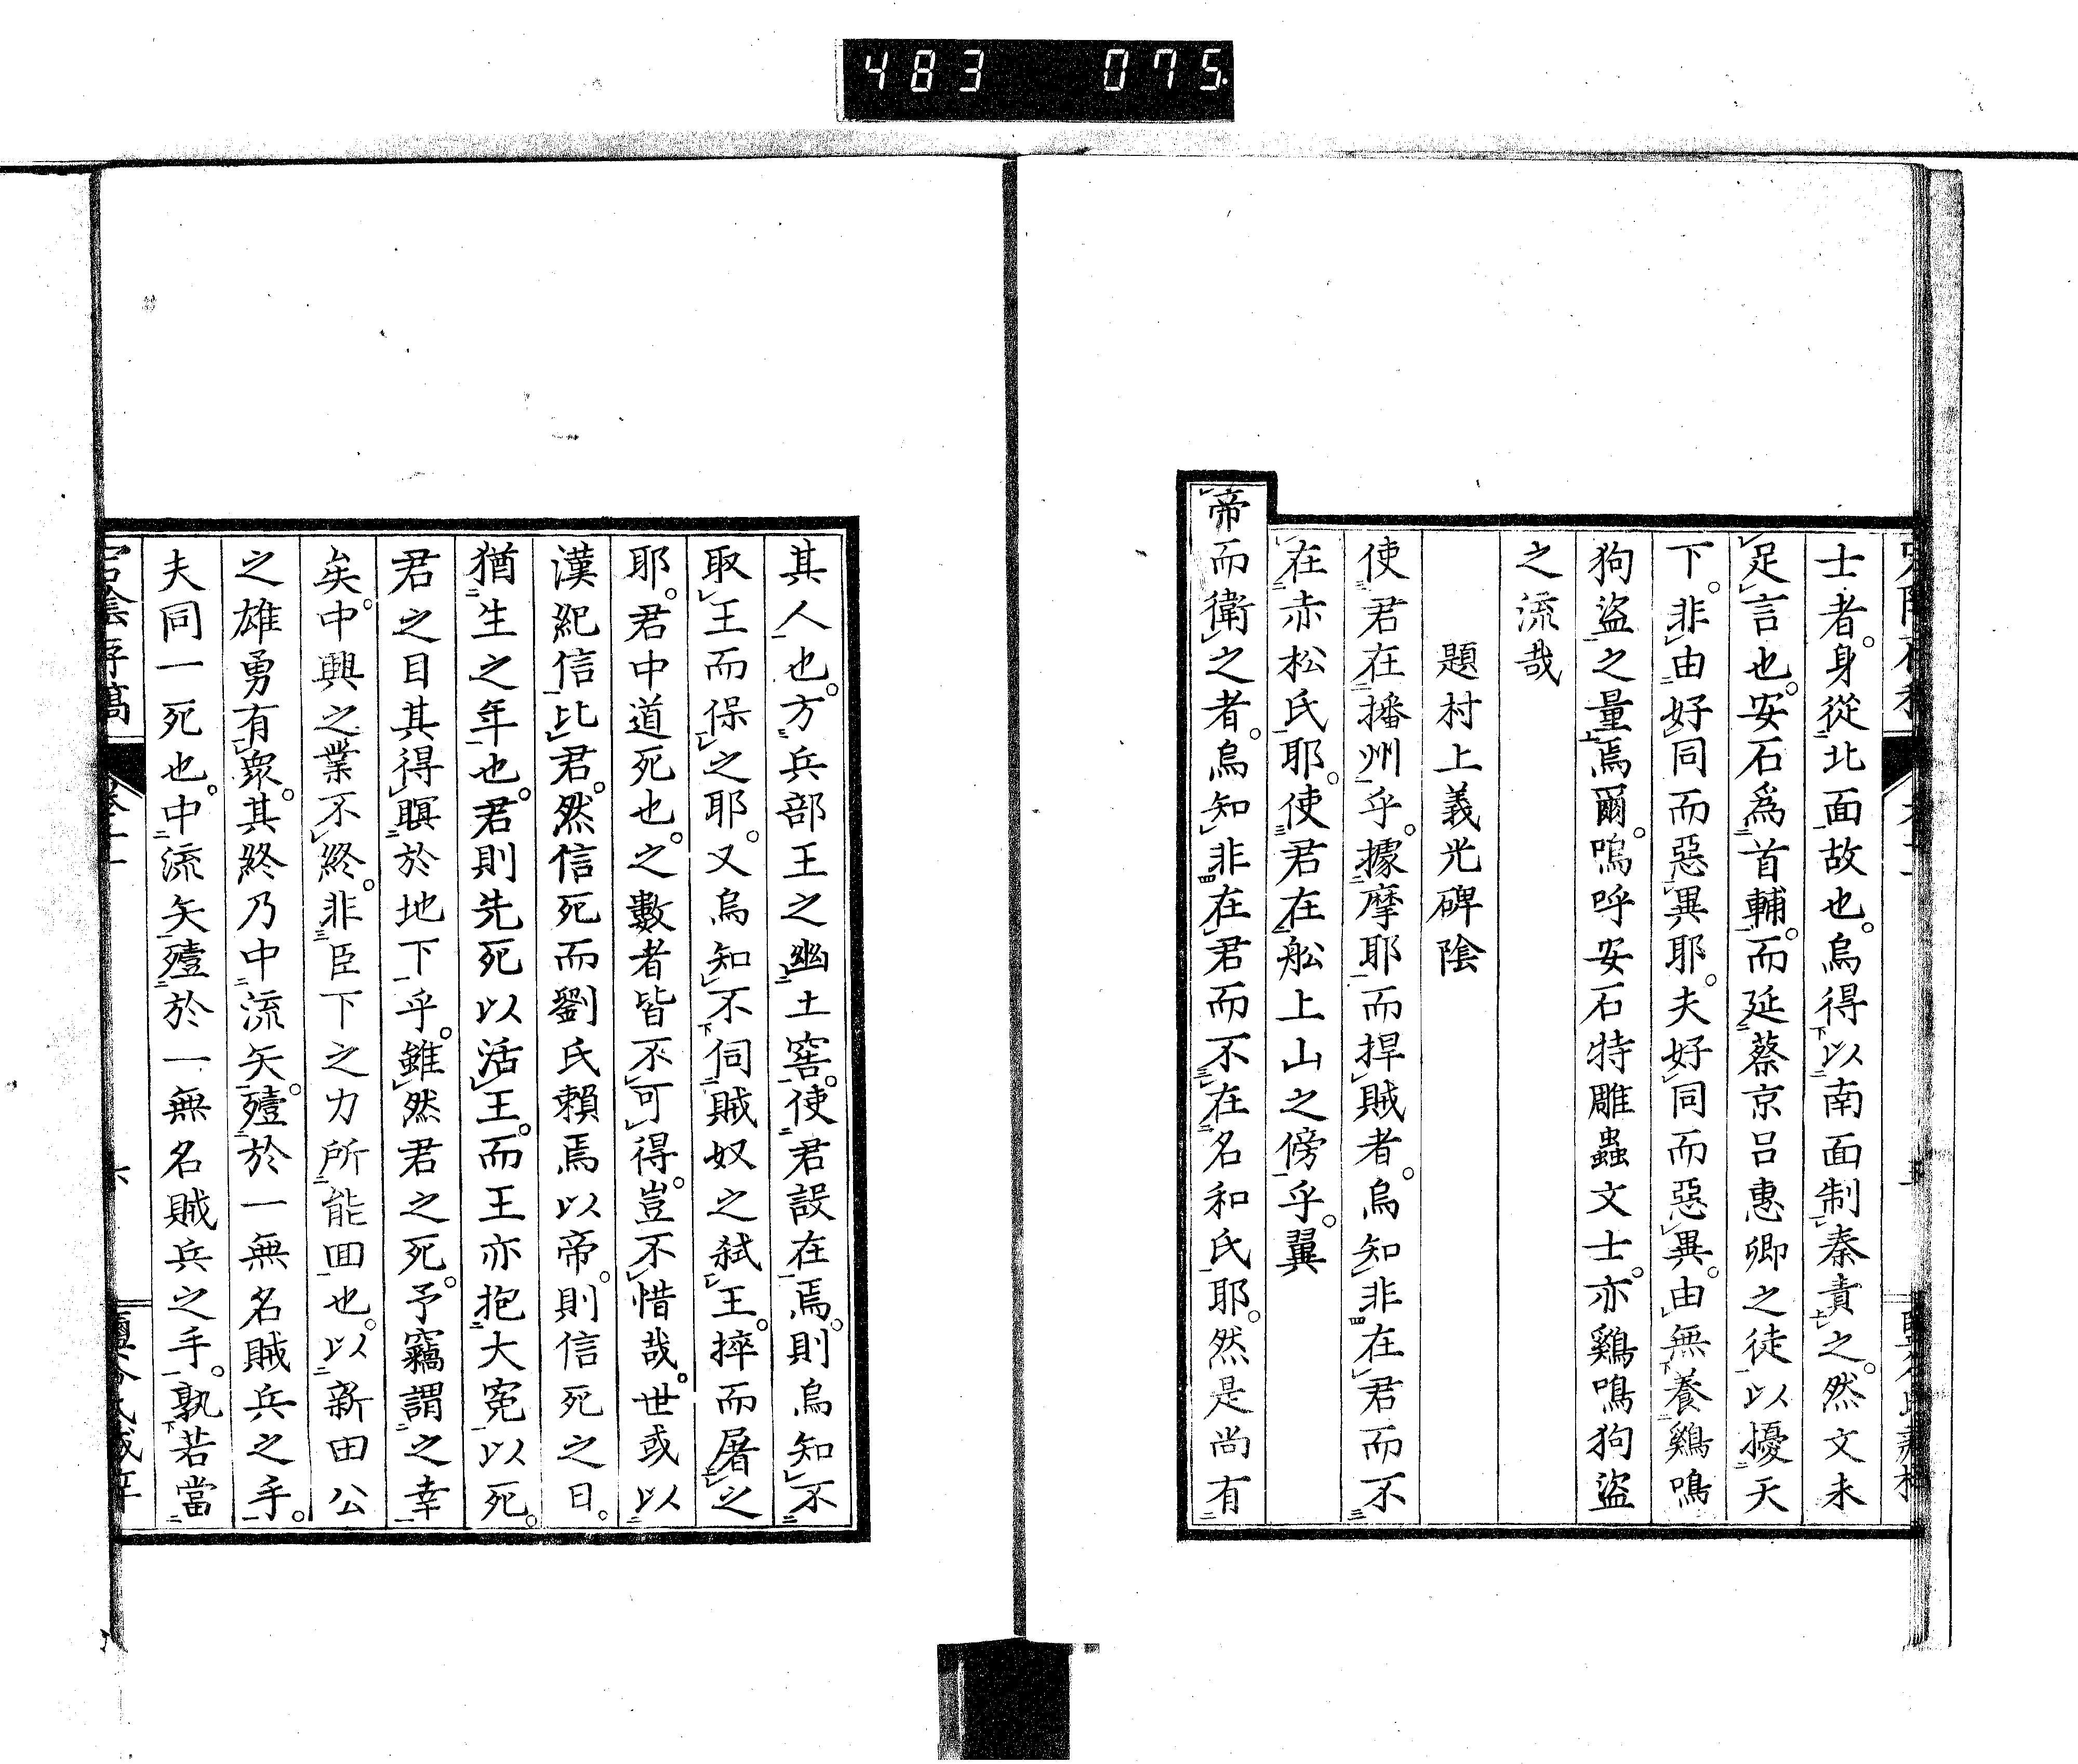 483 075
士者。身從北面故也。烏得以南面制秦責之。然文未
足言也。安石爲首輔。而延蔡京呂惠卿之徒以擾天
下。非由好同而惡異耶。夫好同而惡異。由無養鷄鳴
狗盜之量焉爾。嗚呼安石特雕蟲文士。亦鷄鳴狗盜
之流哉
題村上義光碑陰
使君在播州乎。據摩耶而捍賊者。烏知非在君而不
在赤松氏耶。使君在舩上山之傍乎。翼
帝而衛之者。烏知非在君而不在名和氏耶。然是尚有
其人也。方兵部王之幽土窖。使君設在焉。則烏知不
取王而保之耶。又烏知不伺賊奴之弑王。摔而屠之
耶。君中道死也。之數者皆不可得。豈不惜哉。世或以
漢紀信比君。然信死而劉氏賴焉以帝。則信死之日。
猶生之年也。君則先死以活王。而王亦抱大冤以死。
君之目其得瞑於地下乎。雖然君之死。予竊謂之幸
矣。中興之業不終。非臣下之力所能回也。以新田公
之雄勇有衆。其終乃中流矢。殪於一無名賊兵之手。
夫同一死也。中流矢殪於一無名賊兵之手。孰若當